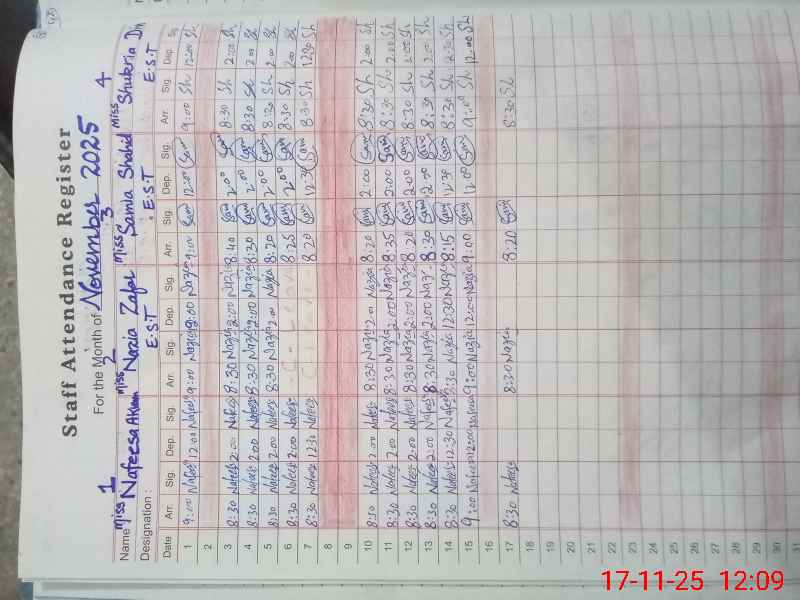 Staff Attendance Register
For the Month of November 2025
1 2 3 4
Name Miss Nafeesa Akram Miss Nazia Zafar Miss Samla Shahid Miss Shukria Din
Designation : E.S.T E.S.T E.S.T
Date Arr. Sig. Dep. Sig. Arr. Sig. Dep. Sig. Arr. Sig. Dep. Sig. Arr. Sig. Dep. Sig.
1 9:00 Nafees 12:00 Nafees 9:00 Nazia 12:00 Nazia 9:00 Sam 12:00 Sam 9:00 Sh 12:00 Sh
2
3 8:30 Nafees 2:00 Nafees 8:30 Nazia 2:00 Nazia 8:40 Sam 2:00 Sam 8:30 Sh 2:00 Sh
4 8:30 Nafees 2:00 Nafees 8:30 Nazia 2:00 Nazia 8:30 Sam 2:00 Sam 8:30 Sh 2:00 Sh
5 8:30 Nafees 2:00 Nafees 8:30 Nazia 2:00 Nazia 8:20 Sam 2:00 Sam 8:30 Sh 2:00 Sh
6 8:30 Nafees 2:00 Nafees 8:25 Sam 2:00 Sam 8:30 Sh 2:00 Sh
7 8:30 Nafees 12:30 Nafees 8:20 Sam 12:30 Sam 8:30 Sh 12:30 Sh
8
9
10 8:30 Nafees 2:00 Nafees 8:30 Nazia 2:00 Nazia 8:20 Sam 2:00 Sam 8:30 Sh 2:00 Sh
11 8:30 Nafees 2:00 Nafees 8:30 Nazia 2:00 Nazia 8:35 Sam 2:00 Sam 8:30 Sh 2:00 Sh
12 8:30 Nafees 2:00 Nafees 8:30 Nazia 2:00 Nazia 8:20 Sam 2:00 Sam 8:30 Sh 2:00 Sh
13 8:30 Nafees 2:00 Nafees 8:30 Nazia 2:00 Nazia 8:30 Sam 2:00 Sam 8:30 Sh 2:00 Sh
14 8:30 Nafees 12:30 Nafees 8:30 Nazia 12:30 Nazia 8:15 Sam 12:30 Sam 8:30 Sh 12:30 Sh
15 9:00 Nafees 12:00 Nafees 9:00 Nazia 12:00 Nazia 9:00 Sam 12:00 Sam 9:00 Sh 12:00 Sh
16
17 8:30 Nafees 8:30 Nazia 8:20 Sam 8:30 Sh
18
19
20
21
22
23
24
25
26
27
28
29
30
31
17-11-25 12:09